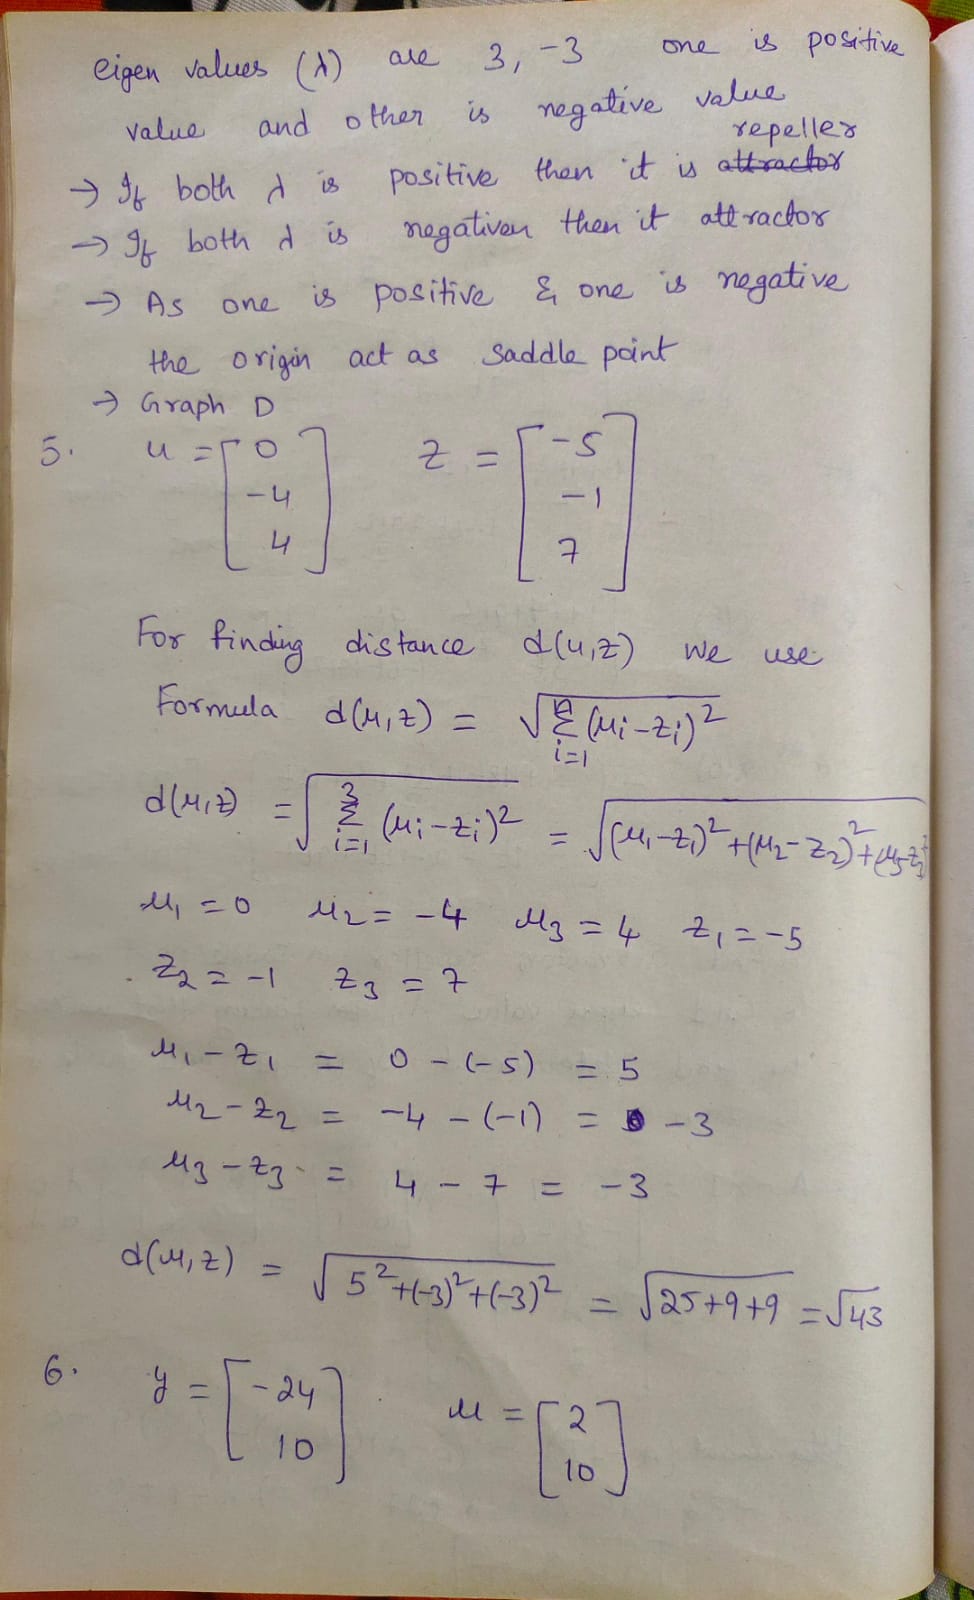 eigen values (λ) are 3, -3 one is positive
value and other is negative value
→ If both λ is positive then it is attractor repeller
→ If both λ is negativen then it attractor
→ As one is positive & one is negative
the origin act as saddle point
→ Graph D
5. u = [0 -4 4] z = [-5 -1 7]
For finding distance d(u,z) we use
Formula d(u,z) = √Σ_{i=1}^{n} (ui-zi)²
d(u,z) = √Σ_{i=1}^{3} (ui-zi)² = √(u1-z1)²+(u2-z2)²+(u3-z3)²
u1 = 0 u2 = -4 u3 = 4 z1 = -5
z2 = -1 z3 = 7
u1 - z1 = 0 - (-5) = 5
u2 - z2 = -4 - (-1) = -3
u3 - z3 = 4 - 7 = -3
d(u,z) = √5²+(-3)²+(-3)² = √25+9+9 = √43
6. y = [-24 10] u = [2 10]